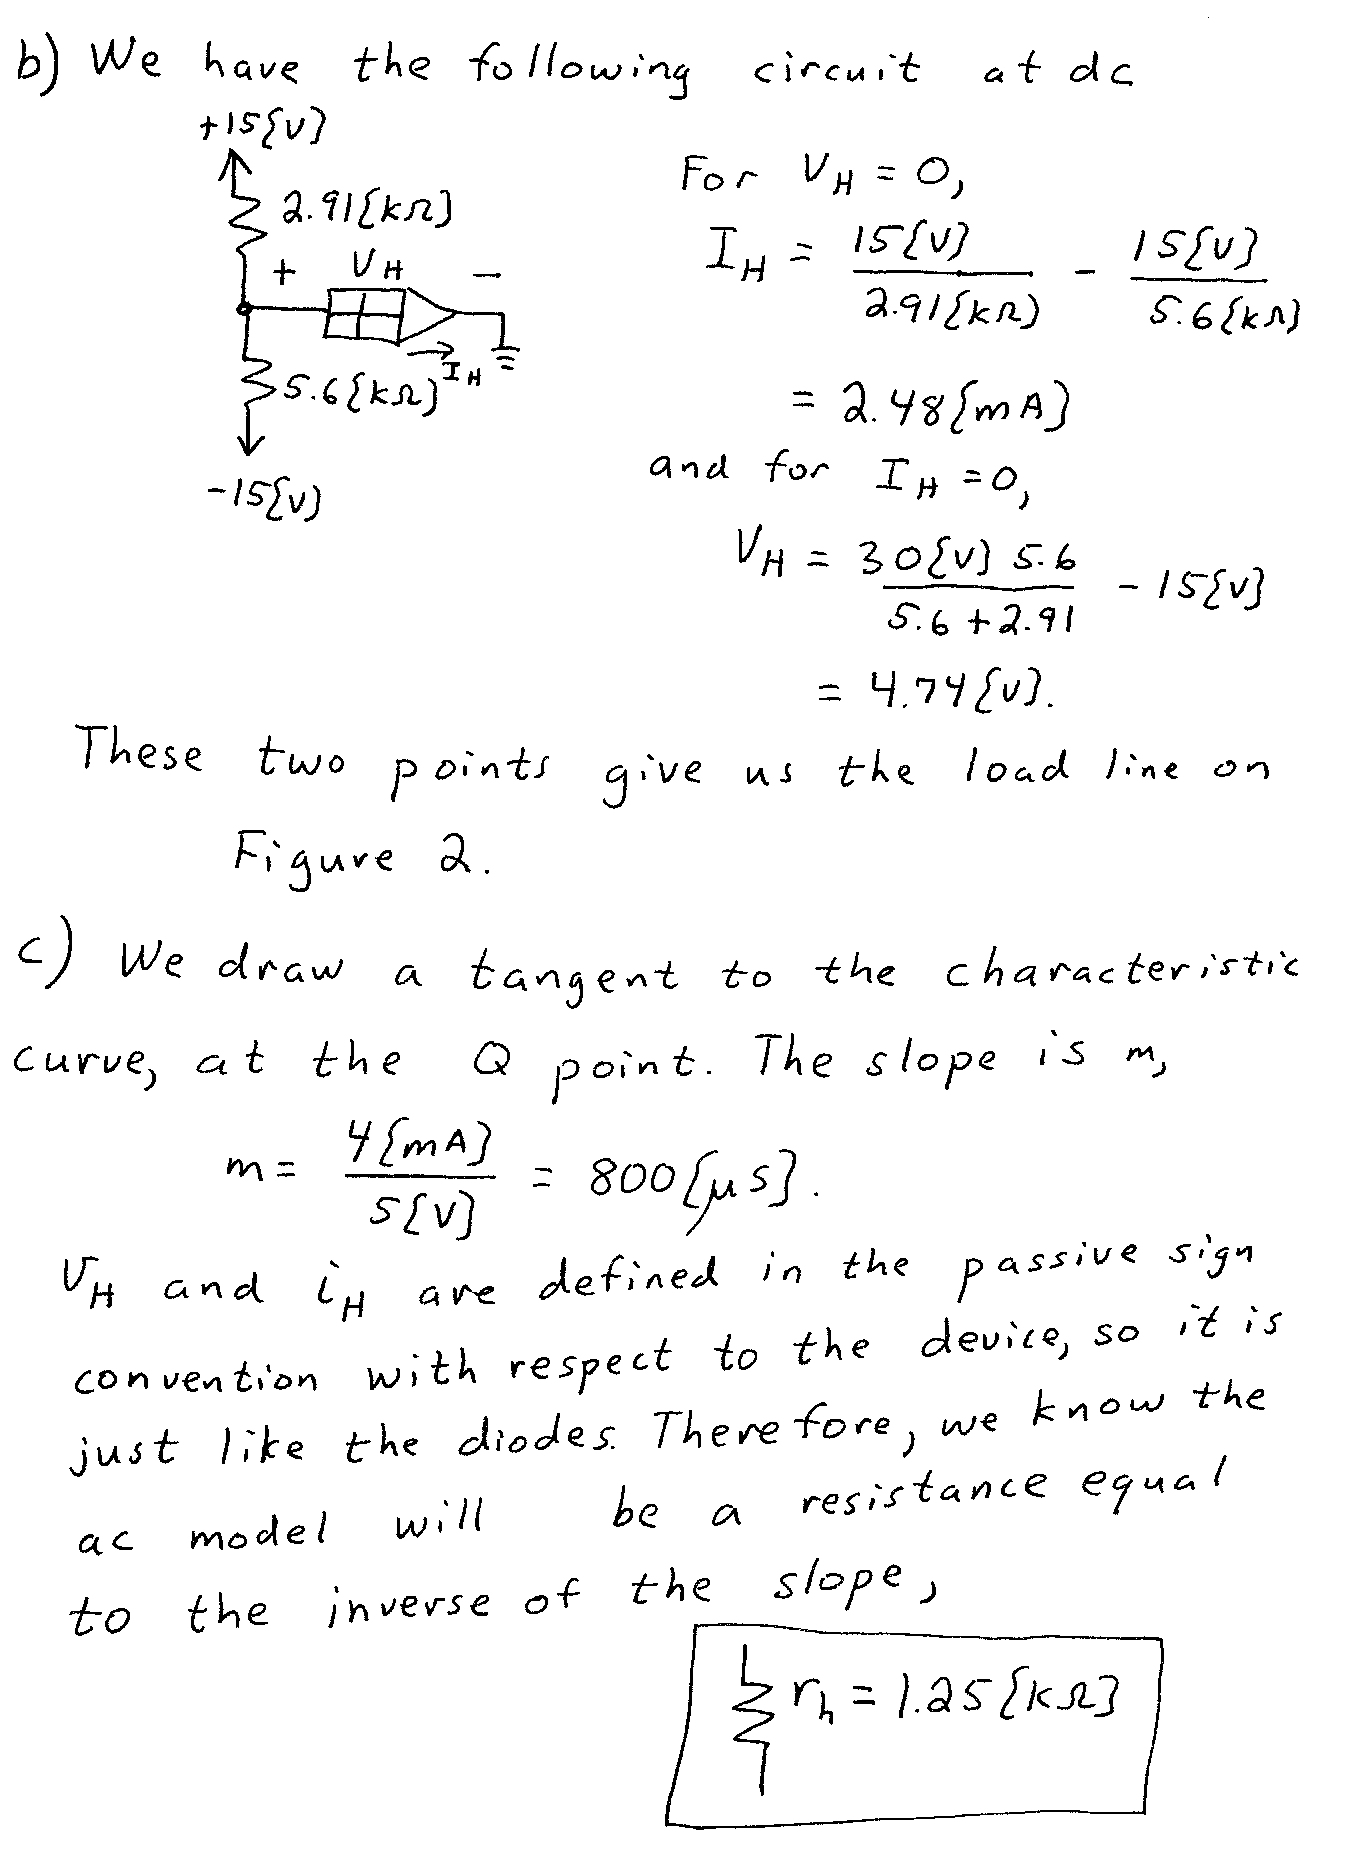 b) We have the following circuit at dc
+15{V}
2.91{kΩ}
+ VH -
IH
5.6{kΩ}
-15{V}
For VH = 0,
IH = 15{V} / 2.91{kΩ} - 15{V} / 5.6{kΩ}
= 2.48{mA}
and for IH = 0,
VH = 30{V} 5.6 / 5.6 + 2.91 - 15{V}
= 4.74{V}.
These two points give us the load line on
Figure 2.
c) We draw a tangent to the characteristic
curve, at the Q point. The slope is m,
m = 4{mA} / 5{V} = 800{μS}.
vH and iH are defined in the passive sign
convention with respect to the device, so it is
just like the diodes. Therefore, we know the
ac model will be a resistance equal
to the inverse of the slope,
rh = 1.25{kΩ}